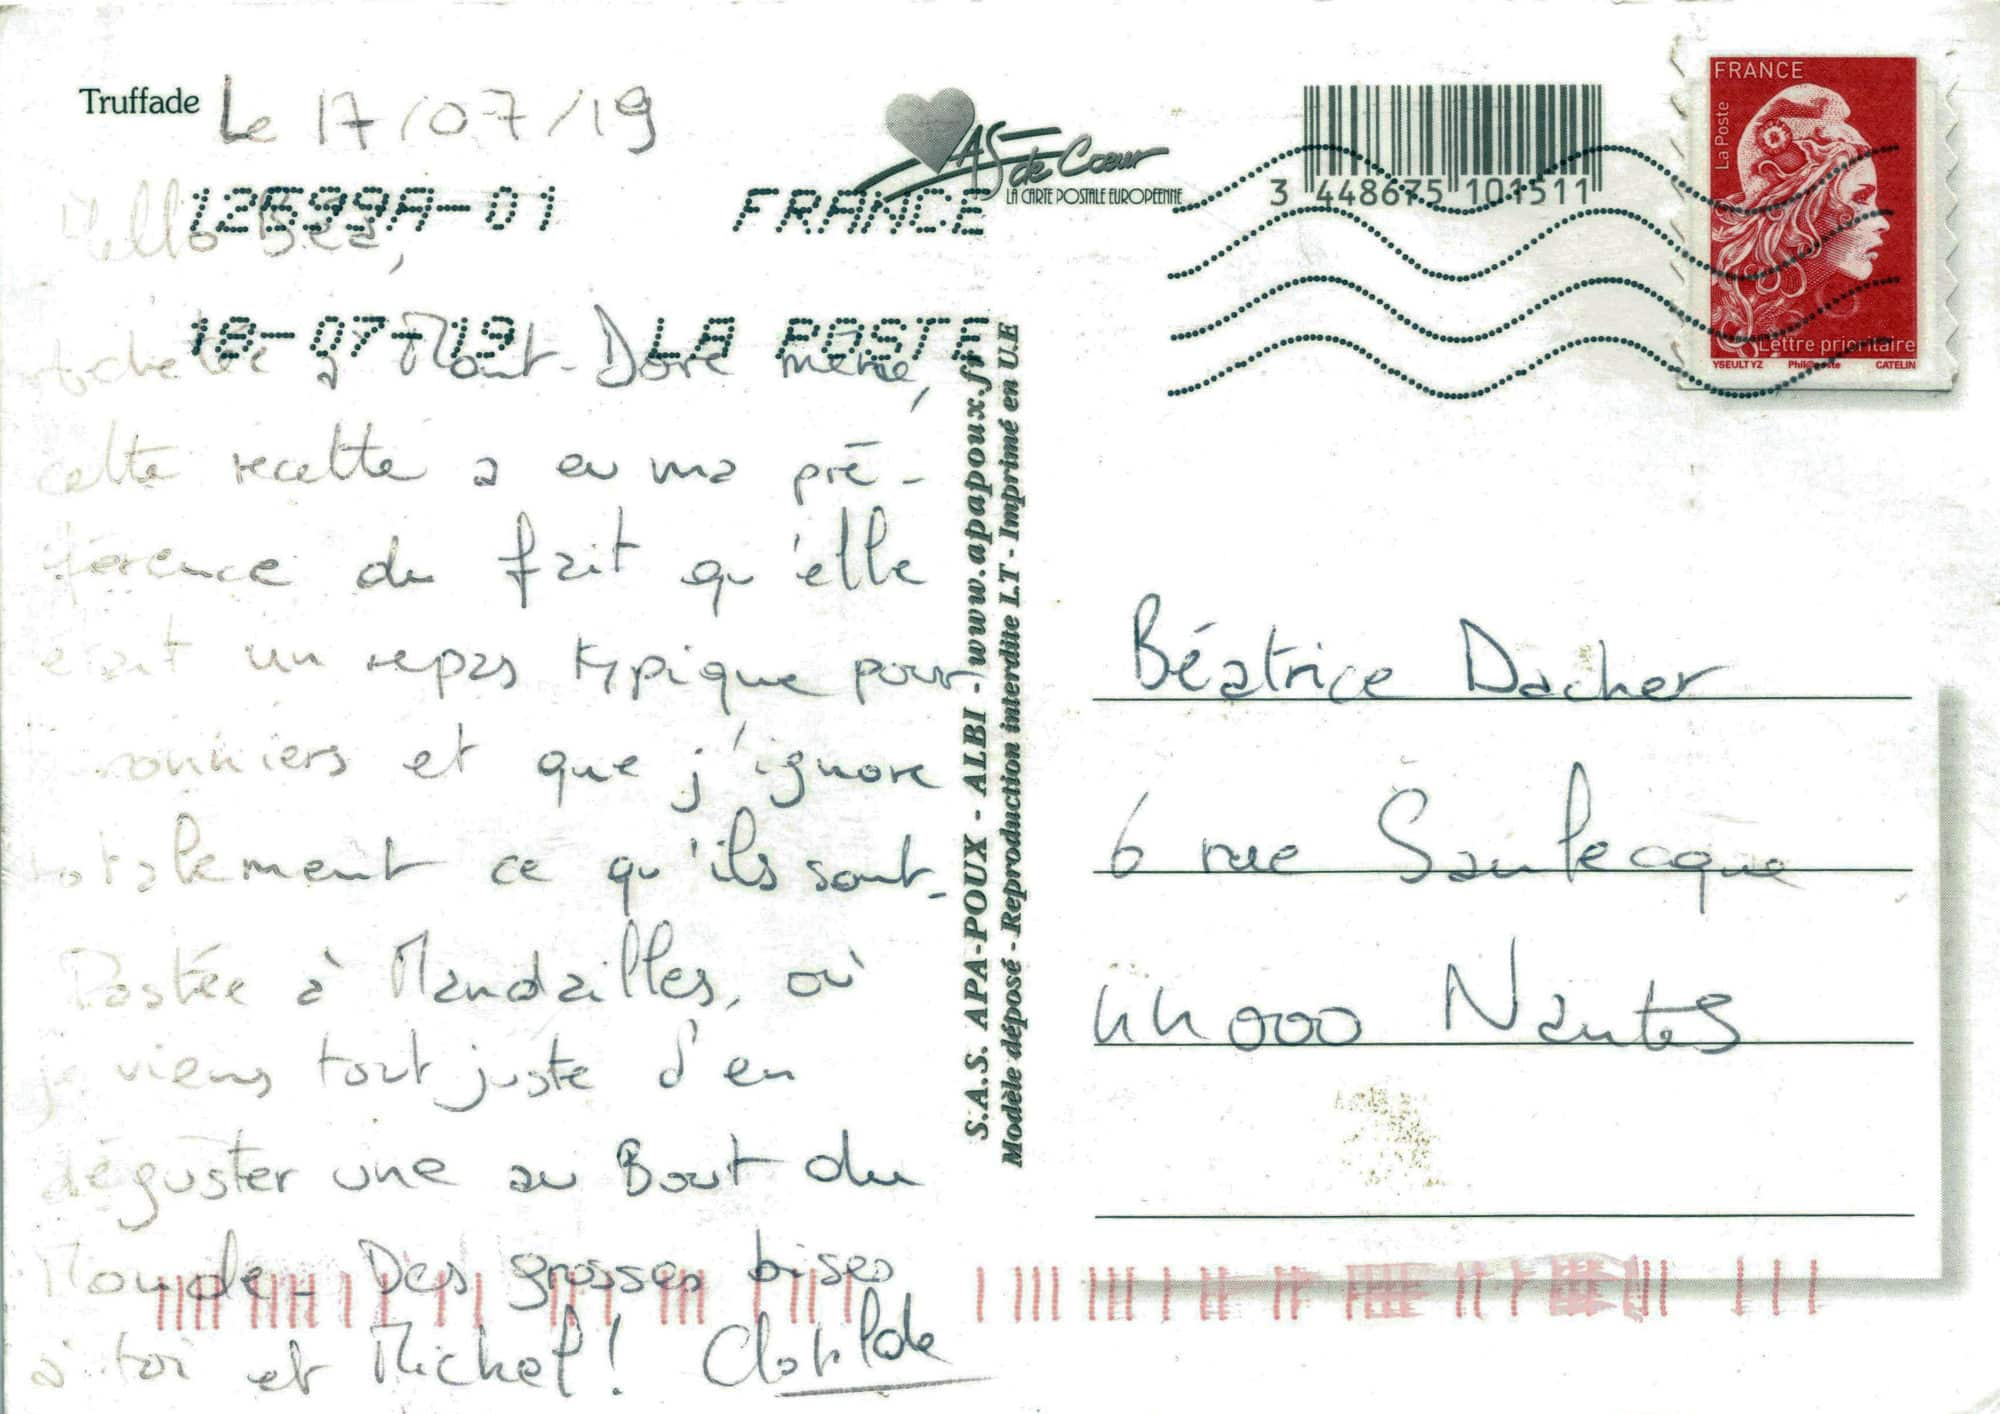 Truffade
Le 17/07/19
AS de Cœur
LA CARTE POSTALE EUROPEENNE
3 448675 101511
FRANCE
La Poste
Lettre prioritaire
YSEULT YZ Phil@poste CATELIN
12699A-01 FRANCE
18-07-19 LA POSTE
Hello Béa,
Achetée à Mont-Dore même,
cette recette a eu ma pré-
férence du fait qu'elle
était un repas typique pour
ronniers et que j'ignore
totalement ce qu'ils sont.
Postée à Mandailles, où
je viens tout juste d'en
déguster une au Bout du
Monde. Des grosses bises
à toi et Mickel! Clotilde
S.A.S. APA-POUX - ALBI - www.apapoux.fr
Modèle déposé - Reproduction interdite LT - Imprimé en U.E
Béatrice Dacher
6 rue Sanlecque
44000 Nantes